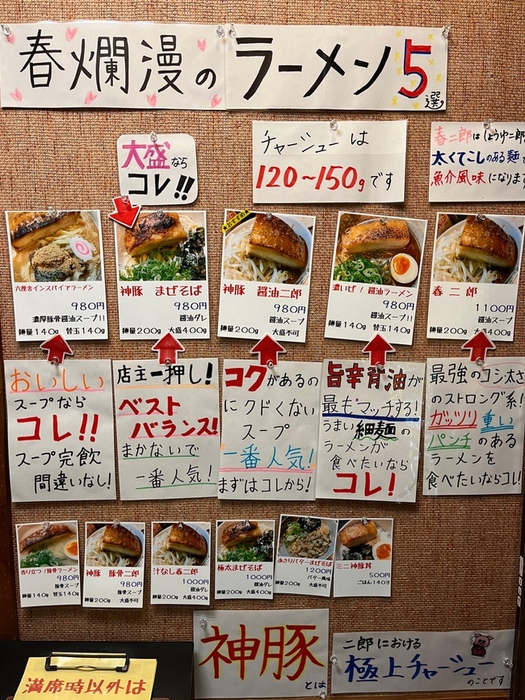 春爛漫の
ラーメン5選
大盛なら
コレ!!
チャーシューは
120〜150gです
春二郎はしょうゆ二郎
太くてこしのある麺で
魚介風味になります
六厘舎インスパイアラーメン
980円
濃厚豚骨醤油スープ!!
麺量140g 替玉140g
神豚 まぜそば
980円
醤油ダレ
麺量200g 大盛400g
神豚 醤油二郎
980円
醤油スープ
麺量200g 大盛不可
濃いぜ!醤油ラーメン
980円
醤油スープ!!
麺量140g 替玉140g
春二郎
1100円
醤油スープ
麺量200g 大盛400g
おいしい
スープなら
コレ!!
スープ完飲
間違いなし!
店主一押し!
ベスト
バランス!
まかないで
二番人気!
コクがあるの
にクドくない
スープ
一番人気!
まずはコレから!
旨辛背油が
最もマッチする!
うまい細麺の
ラーメンが
食べたいなら
コレ!
最強のコシ太さ
のストロング系!
ガッツリ重い
パンチのある
ラーメンを
食べたいならコレ!
香り立つ!豚骨ラーメン
980円
豚骨スープ
麺量140g 替玉140g
神豚 豚骨二郎
980円
豚骨スープ
麺量200g 大盛不可
汁なし春二郎
1000円
醤油ダレ
麺量200g 大盛400g
極太まぜそば
1000円
醤油ダレ
麺量200g 大盛400g
あさりバターまぜそば
1200円
バター風味
麺量200g 大盛不可
ミニ神豚丼
500円
ごはん140g
神豚
とは
二郎における
極上チャーシュー
のことです
満席時以外は